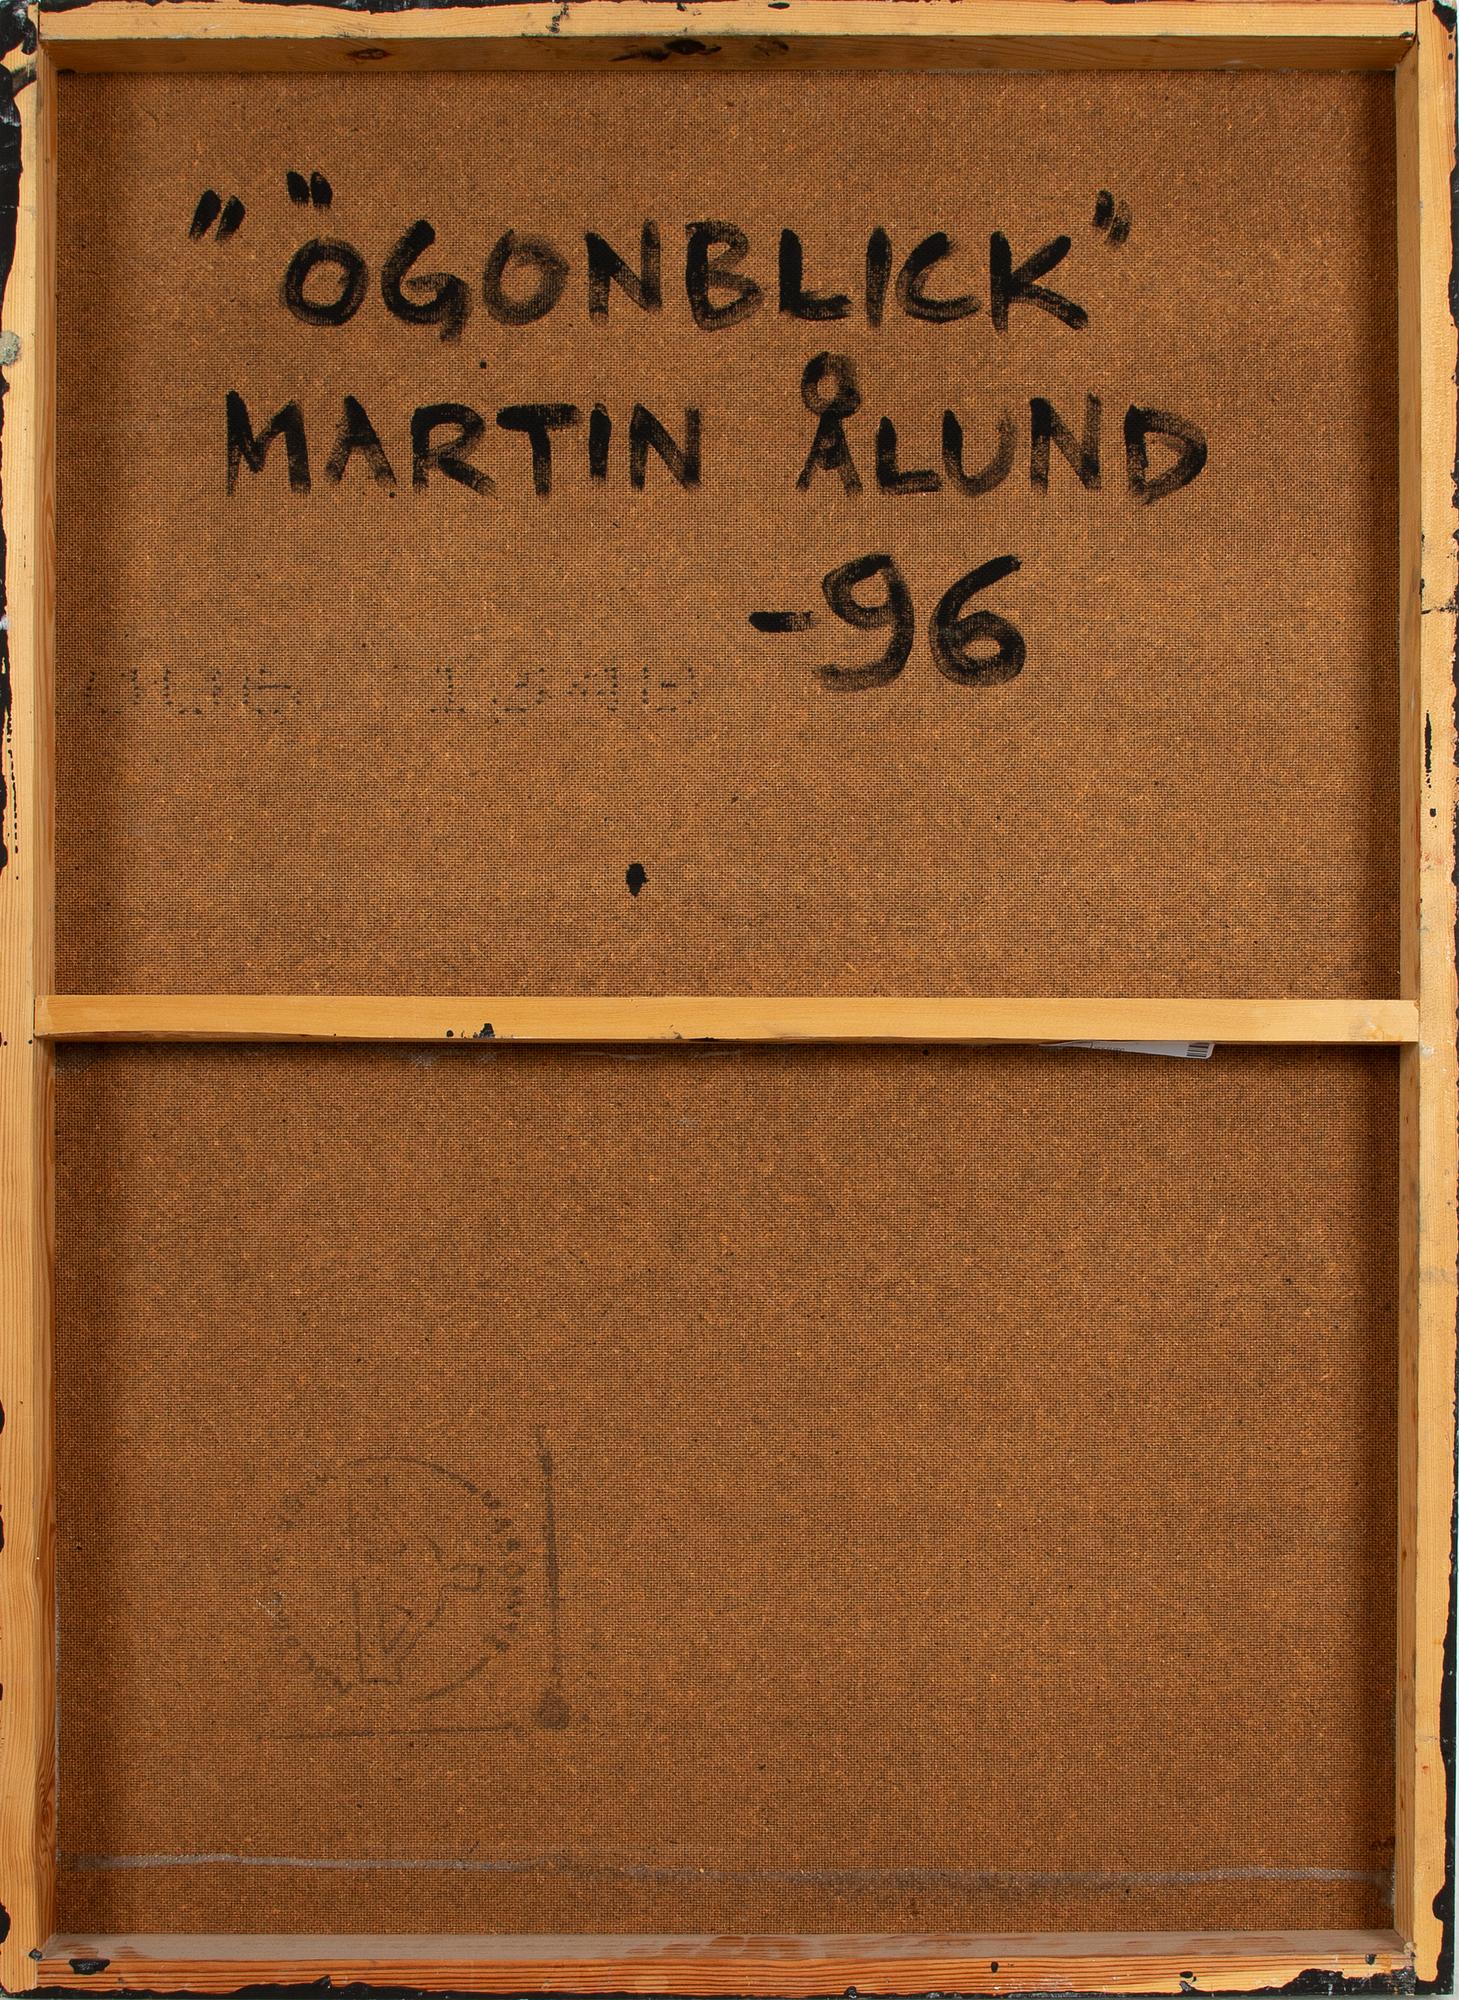 "ÖGONBLICK"
MARTIN ÅLUND
-96